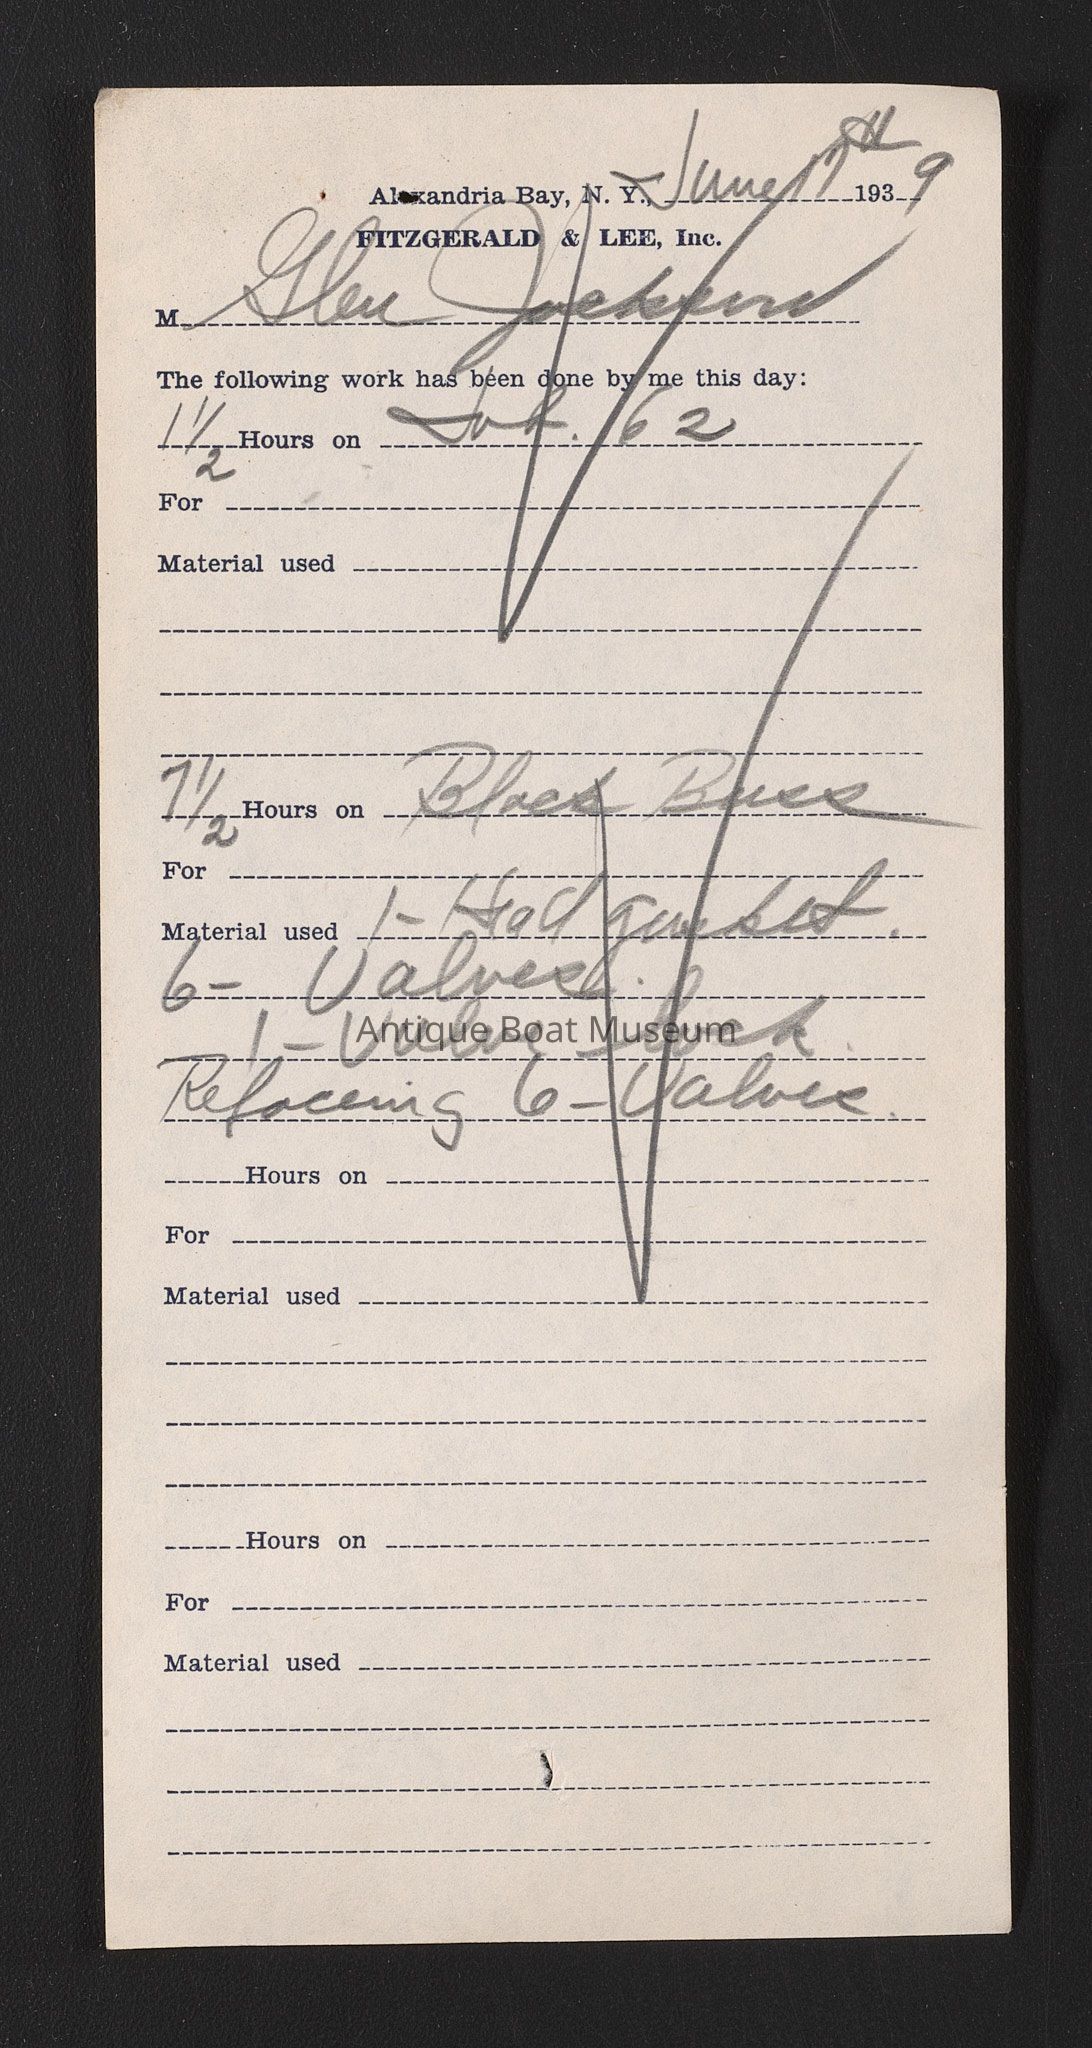 Alexandria Bay, N. Y., June 17th 1939
FITZGERALD & LEE, Inc.
M Glen Jackson
The following work has been done by me this day:
1 1/2 Hours on Job. 62
For
Material used
7 1/2 Hours on Black Bass
For
Material used 1- Head gasket.
6- Valves.
1- Valve lock.
Refaceing 6- Valves.
Hours on
For
Material used
Hours on
For
Material used
Antique Boat Museum